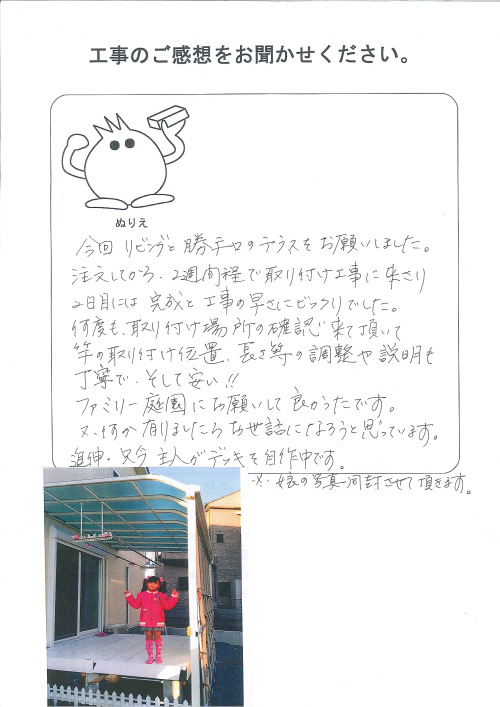 工事のご感想をお聞かせください。
ぬりえ
今回 リビングと勝手口のテラスをお願いしました。
注文してから、2週間程で取り付け工事に来さり
2日目には完成と工事の早さにビックリでした。
何度も、取り付け場所の確認に来て頂いて
竿の取り付け位置、長さ等の調整や説明も
丁寧で、そして安い!!
ファミリー庭園にお願いして良かったです。
又、何か有りましたらお世話になろうと思っています。
追伸・只今 主人がデッキを自作中です。
娘の写真同封させて頂きます。